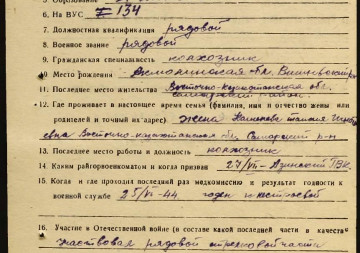 6. На ВУС № 134
7. Должностная квалификация рядовой
8. Военное звание рядовой
9. Гражданская специальность колхозник
10 Место рождения Акмолинская обл., Вишневский р-н
11. Последнее место жительства Восточно-Казахстанская обл.
Самарский район
12. Где проживает в настоящее время семья (фамилия, имя и отчество жены или
родителей и точный их адрес) жена
Восточно-казахстанская обл Самарский р-н
13. Последнее место работы и должность колхозник
14. Каким райгорвоенкоматом и когда призван 27/VI-
15. Когда и где проходил последний раз медкомиссию и результат годности к
военной службе 25/VI-44 годен к строевой
16. Участие в Отечественной войне (в составе какой последней части в качестве
участвовал рядовой стрелковой части